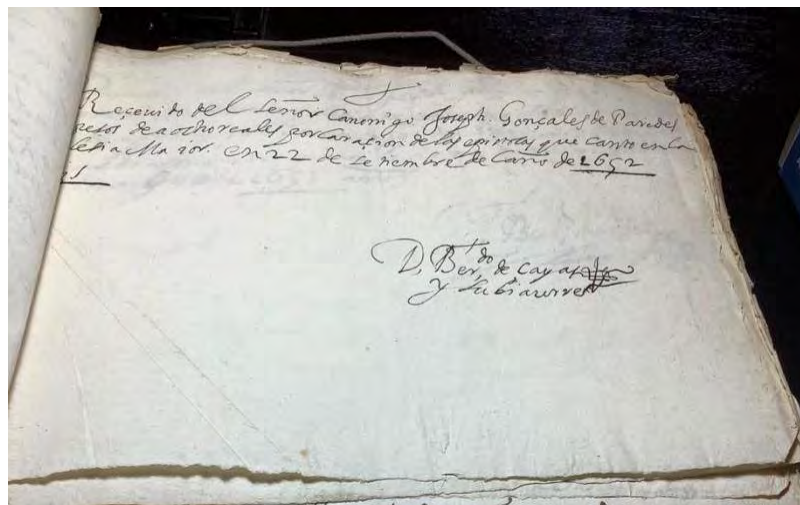 Reçeui do del Señor Canonigo Joseph. Gonçales de Paredes
pesos de a ocho reales por la raçion de las epistolas que canto en la
lesia Maior. en 22 de setiembre de l año de 1652
D. Ber.do de Cayas
y